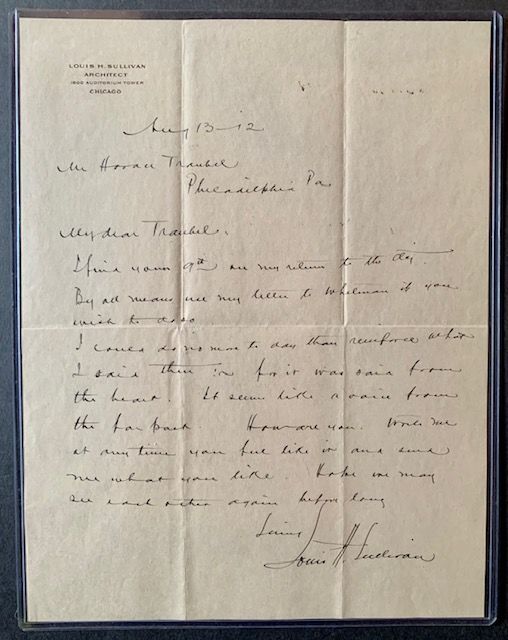 LOUIS H. SULLIVAN
ARCHITECT
1600 AUDITORIUM TOWER
CHICAGO
Aug 13-12
Mr Horace Traubel
Philadelphia Pa
My dear Traubel:
I find your 9th on my return to the city.
By all means use my letter to Whitman if you
wish to do so.
I could do no more to day than reinforce what
I said then for it was said from
the heart. It seems like a voice from
the far past. How are you. Write me
at any time you feel like it and send
me what you like. Hope we may
see each other again before long
Louis H. Sullivan